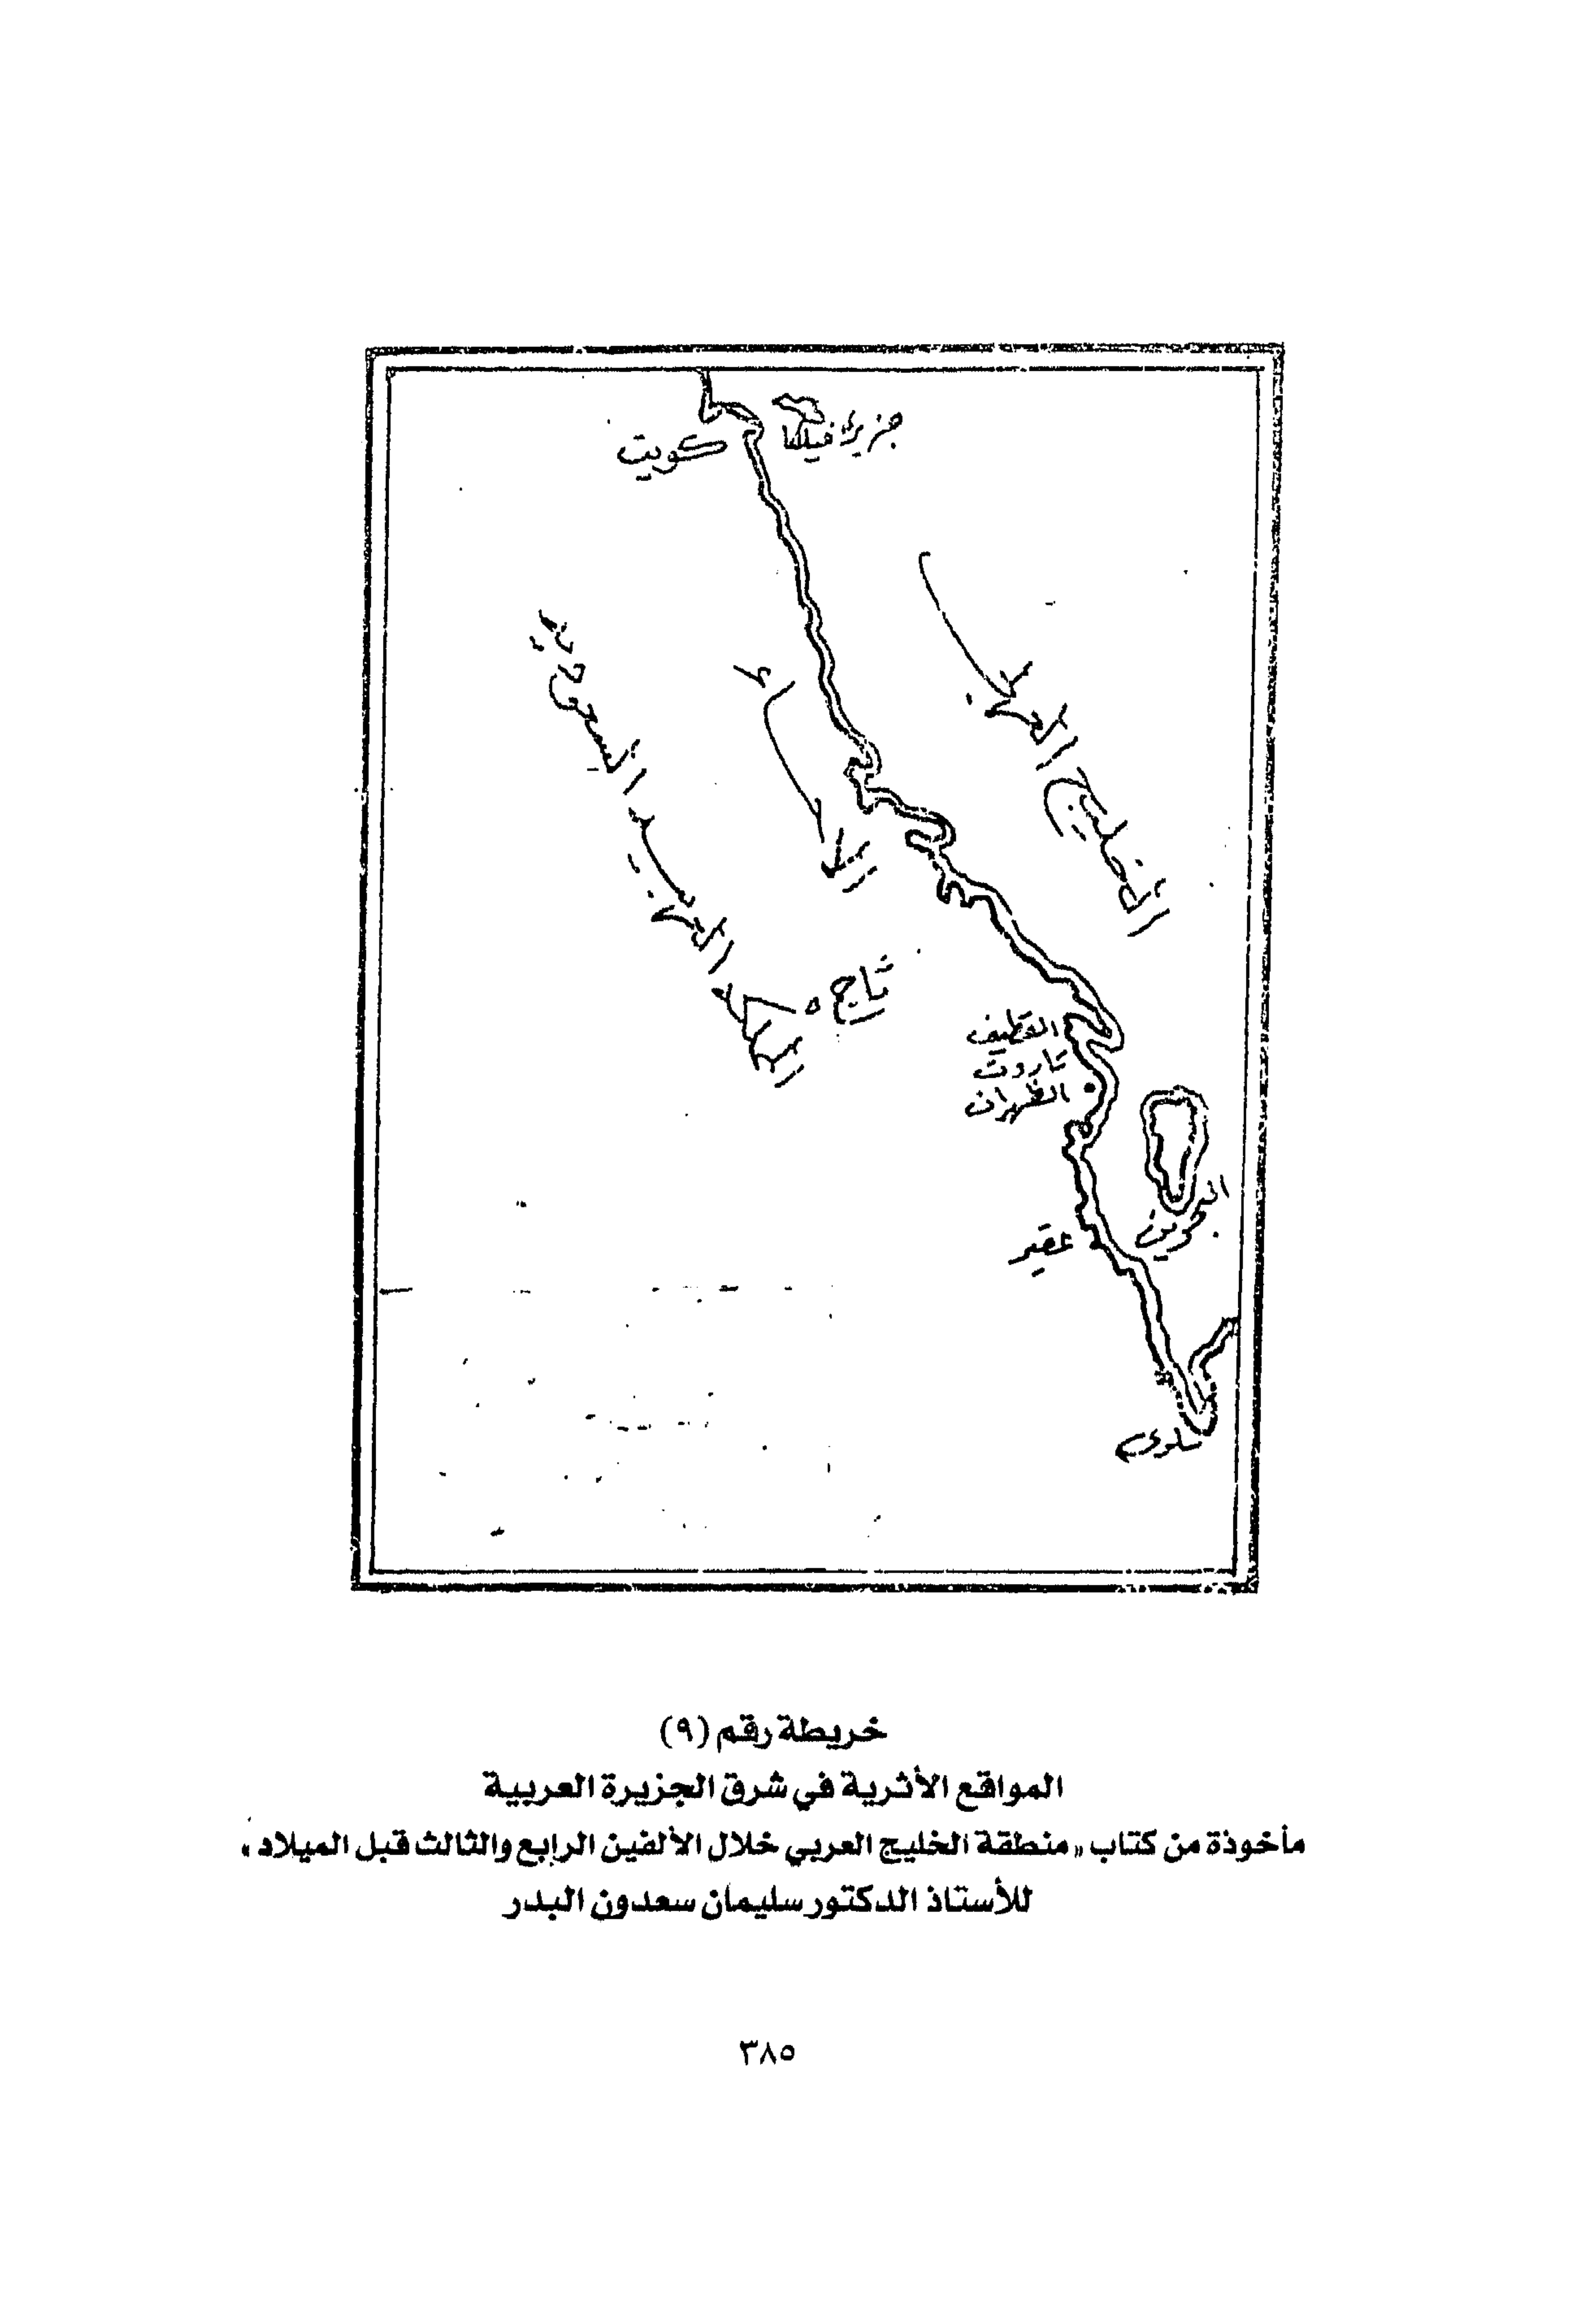 جزيرة فيلكا
كويت
الخليج العربي
الاحساء
المملكة العربية السعودية
ثاج
القطيف
تاروت
الظهران
البحرين
عقير
سلوى
خريطة رقم (٩)
المواقع الأثرية في شرق الجزيرة العربية
مأخوذة من كتاب «منطقة الخليج العربي خلال الألفين الرابع والثالث قبل الميلاد»
للأستاذ الدكتور سليمان سعدون البدر
٣٨٥